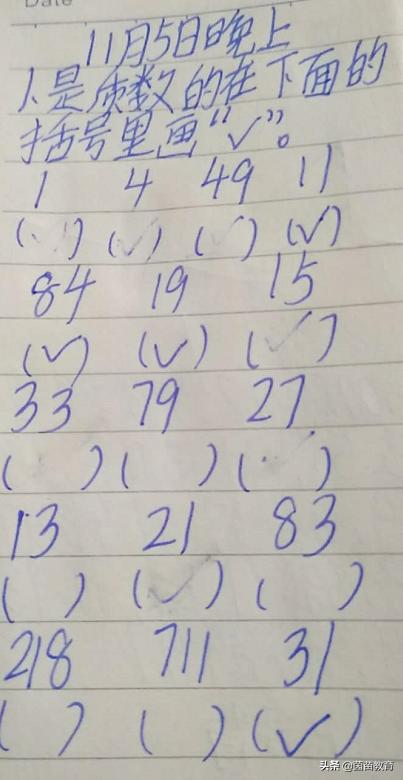 Date
11月5日晚上
1、是质数的在下面的
括号里画“✓”。
1 4 49 11
(✓) (✓) (✓) (✓)
84 19 15
(✓) (✓) (✓)
33 79 27
( ) ( ) (✓)
13 21 83
( ) (✓) ( )
218 711 31
( ) ( ) (✓)
头条 @茵茵教育